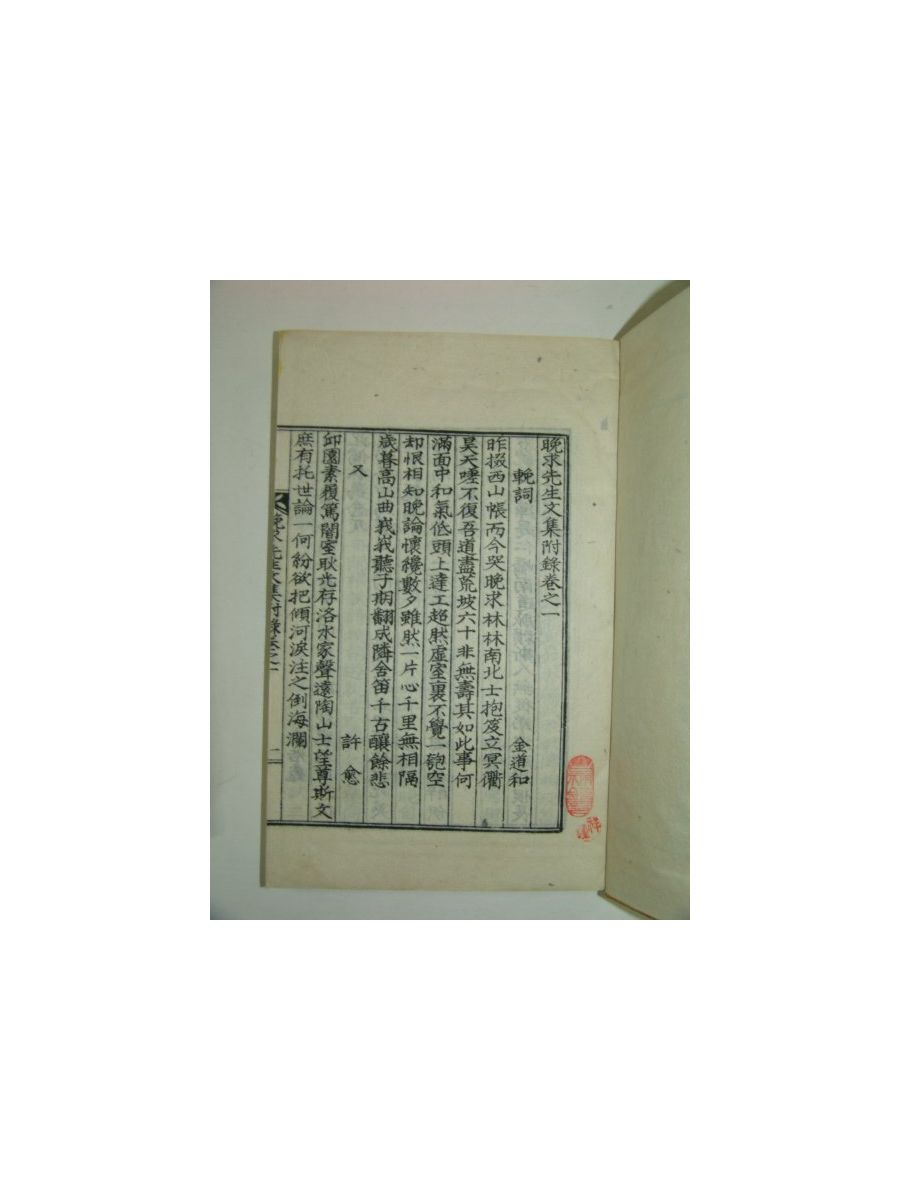 晚求先生文集附錄卷之一
輓詞
金道和
昨掇西山帳而今哭晚求林林南北士抱笈立冥衢
昊天嗟不復吾道盡荒坡六十非無壽其如此事何
滿面中和氣低頭上達工超然虛室裏不覺一匏空
却恨相知晚論懷纔數夕雖然一片心千里無相隔
歲暮高山曲峩峩聽子期翻成隣舍笛千古釀餘悲
又
許愈
邱園素履篤闇室耿光存洛水家聲遠陶山士望尊斯文
庶有托世論一何紛欲把傾河淚注之倒海瀾
晚求先生文集附錄卷之一
一